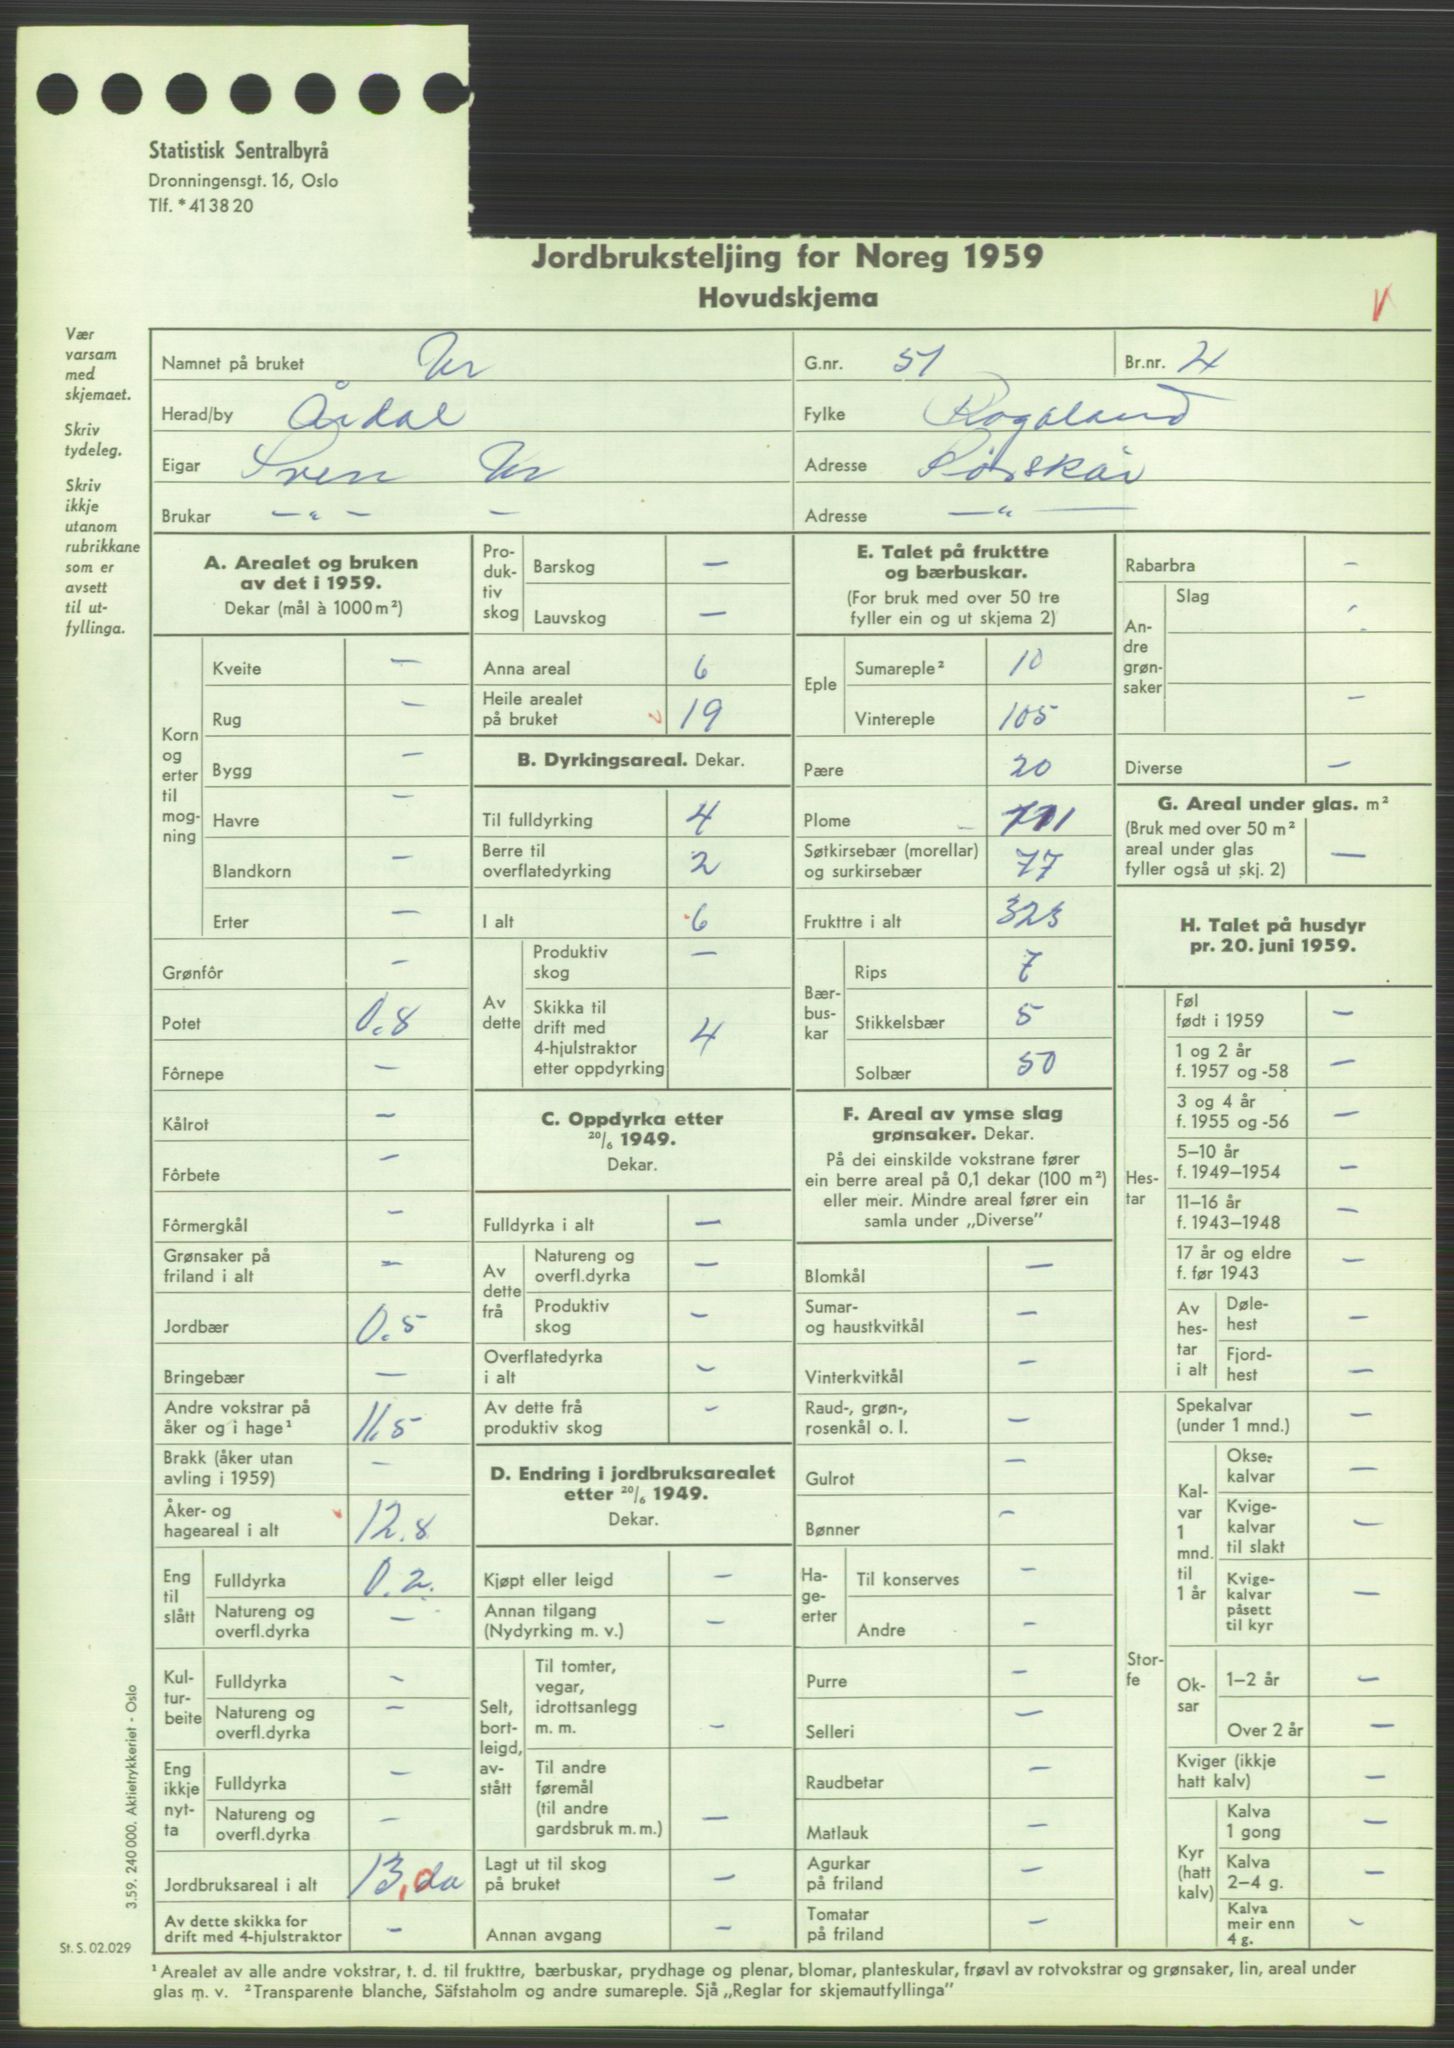 Statistisk Sentralbyrå
Dronningensgt. 16, Oslo
Tlf. *41 38 20
Jordbruksteljing for Noreg 1959
Hovudskjema
V
Vær
varsam
med
skjemaet.
Skriv
tydeleg.
Skriv
ikkje
utanom
rubrikkane
som er
avsett
til ut-
fyllinga.
Namnet på bruket Ur G.nr. 51 Br.nr. 4
Herad/by Årdal Fylke Rogaland
Eigar Sven Ur Adresse
Brukar — „ — — Adresse — „ —
A. Arealet og bruken
av det i 1959.
Dekar (mål à 1000 m²)
Korn
og
erter
til
mog-
ning
Kveite —
Rug —
Bygg —
Havre —
Blandkorn —
Erter —
Grønfôr —
Potet 0.8
Fôrnepe —
Kålrot —
Fôrbete —
Fôrmergkål —
Grønsaker på
friland i alt —
Jordbær 0.5
Bringebær —
Andre vokstrar på
åker og i hage¹ 11.5
Brakk (åker utan
avling i 1959) —
Åker- og
hageareal i alt 12.8
Eng
til
slått
Fulldyrka 0.2
Natureng og
overfl.dyrka —
Kul-
tur-
beite
Fulldyrka —
Natureng og
overfl.dyrka —
Eng
ikkje
nyt-
ta
Fulldyrka —
Natureng og
overfl.dyrka —
Jordbruksareal i alt 13,da
Av dette skikka for
drift med 4-hjulstraktor —
Pro-
duk-
tiv
skog
Barskog —
Lauvskog —
Anna areal 6
Heile arealet
på bruket 19
B. Dyrkingsareal. Dekar.
Til fulldyrking 4
Berre til
overflatedyrking 2
I alt 6
Av
dette
Produktiv
skog —
Skikka til
drift med
4-hjulstraktor
etter oppdyrking 4
C. Oppdyrka etter
20/6 1949.
Dekar.
Fulldyrka i alt —
Av
dette
frå
Natureng og
overfl.dyrka —
Produktiv
skog —
Overflatedyrka
i alt —
Av dette frå
produktiv skog —
D. Endring i jordbruksarealet
etter 20/6 1949.
Dekar.
Kjøpt eller leigd —
Annan tilgang
(Nydyrking m. v.) —
Selt,
bort-
leigd,
av-
stått
Til tomter,
vegar,
idrottsanlegg
m. m. —
Til andre
føremål
(til andre
gardsbruk m. m.) —
Lagt ut til skog
på bruket —
Annan avgang —
E. Talet på frukttre
og bærbuskar.
(For bruk med over 50 tre
fyller ein og ut skjema 2)
Eple
Sumareple² 10
Vintereple 105
Pære 20
Plome 111
Søtkirsebær (morellar)
og surkirsebær 77
Frukttre i alt 323
Bær-
bus-
kar
Rips 7
Stikkelsbær 5
Solbær 50
F. Areal av ymse slag
grønsaker. Dekar.
På dei einskilde vokstrane fører
ein berre areal på 0,1 dekar (100 m²)
eller meir. Mindre areal fører ein
samla under „Diverse”
Blomkål —
Sumar-
og haustkvitkål —
Vinterkvitkål —
Raud-, grøn-,
rosenkål o. l. —
Gulrot —
Bønner —
Ha-
ge-
erter
Til konserves —
Andre —
Purre —
Selleri —
Raudbetar —
Matlauk —
Agurkar
på friland —
Tomatar
på friland —
Rabarbra —
An-
dre
grøn-
saker
Slag
—
Diverse —
G. Areal under glas. m²
(Bruk med over 50 m²
areal under glas
fyller også ut skj. 2) —
H. Talet på husdyr
pr. 20. juni 1959.
Hes-
tar
Føl
født i 1959 —
1 og 2 år
f. 1957 og -58 —
3 og 4 år
f. 1955 og -56 —
5–10 år
f. 1949–1954 —
11–16 år
f. 1943–1948 —
17 år og eldre
f. før 1943 —
Av
hes-
tar
i alt
Døle-
hest —
Fjord-
hest —
Stor-
fe
Spekalvar
(under 1 mnd.) —
Kal-
var
1
mnd.
til
1 år
Okse-
kalvar —
Kvige-
kalvar
til slakt —
Kvige-
kalvar
påsett
til kyr —
Ok-
sar
1–2 år —
Over 2 år —
Kviger (ikkje
hatt kalv) —
Kyr
(hatt
kalv)
Kalva
1 gong —
Kalva
2–4 g. —
Kalva
meir enn
4 g. —
3.59. 240 000. Aktietrykkeriet - Oslo
St. S. 02.029
¹ Arealet av alle andre vokstrar, t. d. til frukttre, bærbuskar, prydhage og plenar, blomar, planteskular, frøavl av rotvokstrar og grønsaker, lin, areal under
glas m. v. ² Transparente blanche, Säfstaholm og andre sumareple. Sjå „Reglar for skjemautfyllinga”